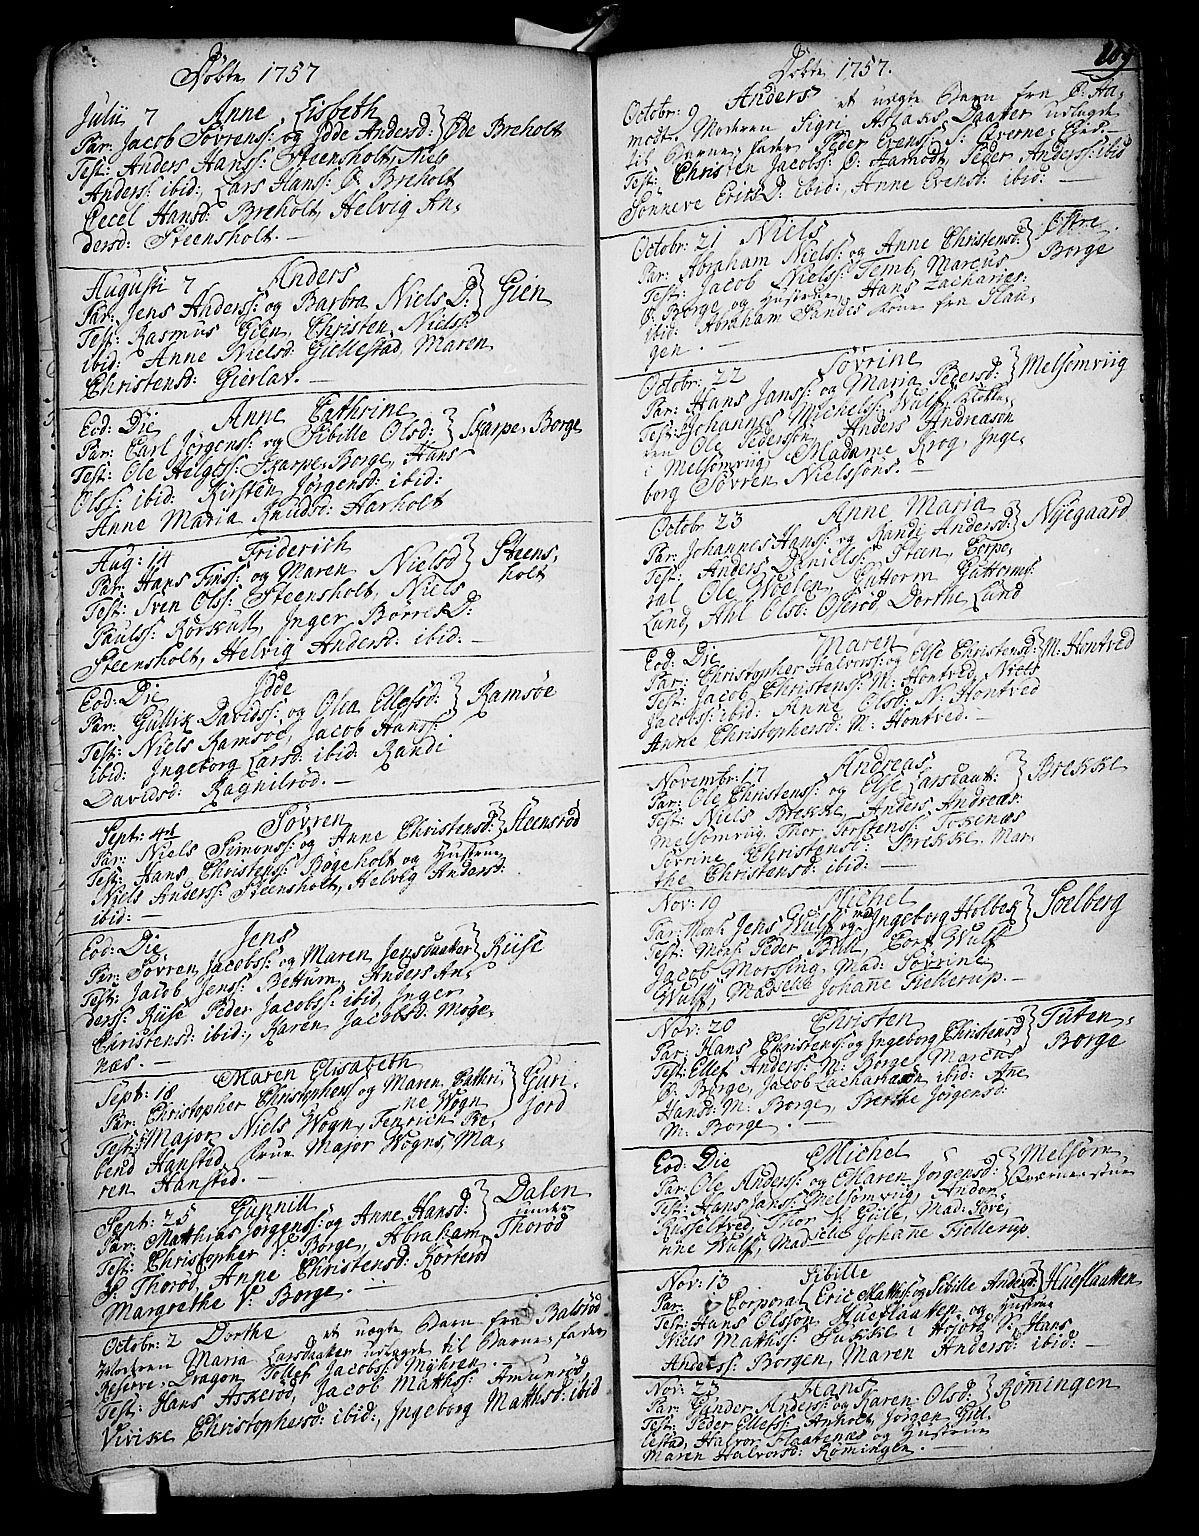 Döbte 1757
Julii 7 Anne Lisbeth
Par: Jacob Sövrens: og Idde Andersd: } Øde Breholt
Test: Anders Hans: Steensholt, Niels
Anders: ibid: Lars Hans: Ø. Breholt
Cecel Hansd: Breholt, Helvig An-
dersd: Steensholt. -
Augusti 7 Anders
Par: Jens Anders: og Barbra Niels D: } Gien
Test: Rasmus Gien, Christen Niels:
ibid: Anne Nielsd: Gillestad, Maren
Christensd: Gierlav. -
Eod: Die Anne Cathrine
Par: Carl Jörgens: og Sibille Olsd: } Skarpe-Borge
Test: Ole Helges: Skarpe-Borge, Hans
Olss: ibid: Kirsten Jörgensd: ibid:
Anne Maria Knudsd: Harholt
Aug: 14 Friderich
Par: Hans Finss: og Maren Nielsd } Steens-
Test: Iven Olss: Steensholt, Niels holt
Paulss: Rörskull, Inger Börres D:
Steensholt, Helvig Andersd: ibid: -
Eod: Die Idde
Par: Gullik Davidss: og Olea Ellefsd: } Ramsöe
Test: Niels Ramsöe, Jacob Hans:
ibid: Ingeborg Larsd: ibid: Randi
Davidsd: Ragnilröd. -
Sept: 4d Sövren
Par: Niels Simonss: og Anne Christensd: } Steensröd
Test: Hans Christens: Bögeholt og Hustrue
Niels Anderss: Steensholt, Helvig Andersd:
ibid: -
Eod: Die Jens
Par: Sövren Jacobs: og Maren Jensdaatter } Riise
Test: Jacob Jens: Bettum, Anders An-
ders: Riise Peder Jacobs: ibid, Inger
Christensd: ibid:, Karen Jacobsd: Moge-
næs. -
Sept: 18 Maren Elisabeth
Par: Christopher Christophers og Maren Cathri- } Guri-
ne Wogn jord
Test: Major Niels Wogn, Henrich Re-
bend Hansted, Frue Major Wogns, Ma-
ren Hansted. -
Sept: 25 Gunnill
Par: Matthias Jörgens: og Anne Hansd: } Dalen
Test: Christopher V: Borge, Abraham under Thoröd
S. Thoröd, Anne Christensd: Korteröd
Margrethe V: Borge. -
Octobr: 2 Dorthe et uægte Barn fra Balsröd
Moderen Maria Larsdaater udlagde til Barnefader
Reserve-Dragon Tollef Jacobss: Myhren.
Test: Hans Askeröd, Jacob Mathss: Amunröd
Vivike Christophersd: ibid:, Ingeborg Mathsd: ibid
109
Döbte 1757.
Octobr: 9 Anders et uægte Barn fra Ø: Aa-
modt, Moderen Sigri Aslaks Daater udlagde
til Barne-fader Peder Evens: S: Everne,
Test: Christen Jacobs: Ø: Aamodt, Peder Anderss: ibid
Sönneve Erics D: ibid:, Anne Evensd: ibid: -
Octobr: 21 Niels
Par: Abraham Niels: og Anne Christensd: } Östre
Test: Jacob Niels: Temb, Marcus Borge
Ö. Borge og Hustrue, Hans Zacharies:
ibid: Abraham Sandes Kone fra Hau-
gen. -
Octobr: 22 Sövrine
Par: Hans Jans: og Maria Pedersd: } Melsomviig
Test: Johannes Michels: Wulf, Klokke-
ren Ole Pederson, Anders Andreason
i Melsomviig, Madame Krog, Inge-
borg Sövren Nielssöns. -
Octobr 23 Anne Maria
Par: Johannes Hans: og Randi Andersd: } Nyegaard
Test: Anders Daniels: Steen, Corpo-
ral Ole Woelen, Guttorm Guttorms:
Lund, Ahl Olsd: Oseröd Dorthe Lund
Eod: Die Maren
Par: Christopher Halvors: og Else Christensd: } M: Hontved
Test: Jacob Christens: M: Hontved, Niels
Jacobs: ibid: Anne Olsd: N: Hontved
Anne Christophersd: M: Hontved. -
Novembr: 17 Andreas
Par: Ole Christens: og Else Larsdaat: } Brekke
Test: Niels Brekke, Anders Andreas:
Melsomviig, Thor Torstens: Tokenæs
Sövrine Christensd: Brekke, Mar-
the Christensd: ibid: -
Nov: 19 Michel
Par: Mons: Jens Wulf og Mad: Ingeborg Holbek } Soelberg
Test: Mons: Peder Bull, Cort Wulf
Jacob Morsling, Mad: Sövrine
Wulf, Madselle Johane Fiellerup. -
Nov: 20 Christen
Par: Hans Christens: og Ingeborg Christensd } Tuten-
Test: Ellef Anders: M: Borge, Marcus Borge
Ö. Borge, Jacob Zachariasen ibid: Ane
Hansd: M: Borge, Berthe Jörgensd:
M: Borge. -
Eod: Die Michel
Par: Ole Anders: og Maren Jörgensd: } Melsom-
Test: Hans Jans: Melsomviig, Anders Qværnerstue
Russeltved, Thor N. Giile, Mad: Sövr-
rine Wulf, Madselle Johane Fiellerup.
Nov: 13 Sibille
Par: Corporal Eric Mathss: og Sibille Andersd: } Hueslaatten
Test: Hans Olsson Hueslaatten og Hustrue
Niels Mathss: Huskke i Höjord, N: Hans
Anderss: Borgen, Maren Andersd: ibid: -
Nov: 23 Hans
Par: Gunder Anders: og Karen Olsd: } Römingen
Test: Peder Ellefs: Anholt, Jörgen Giel-
lestad, Halvor Flaatenæs og Hustrue
Maren Halvorsd: Römingen. -